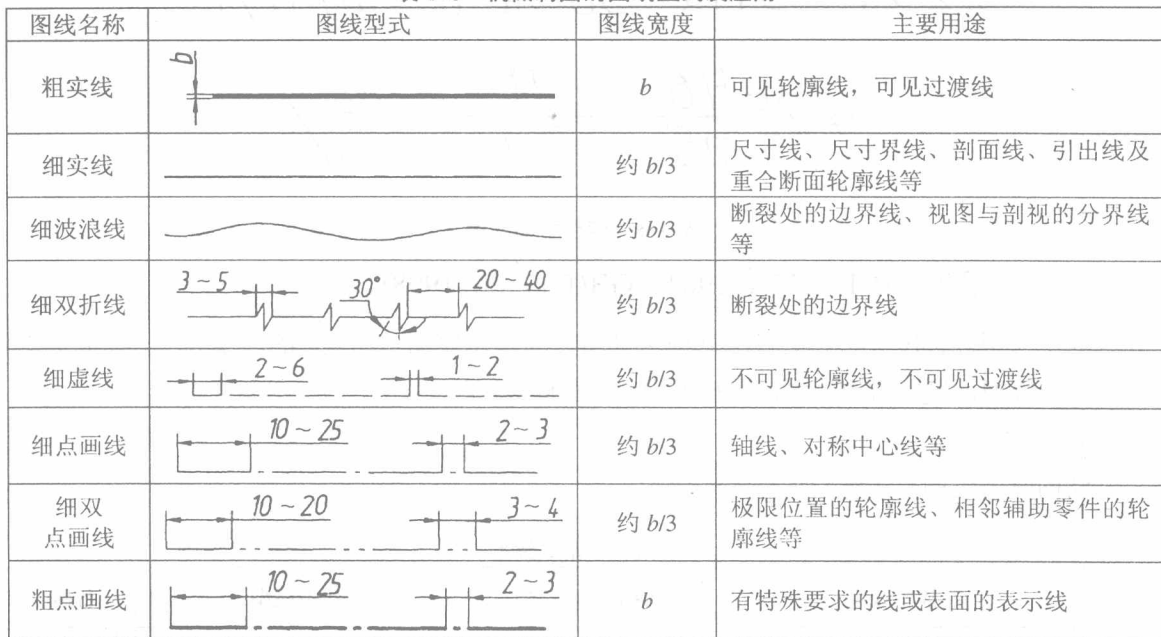 图线名称 图线型式 图线宽度 主要用途
粗实线 b b 可见轮廓线，可见过渡线
细实线 约 b/3 尺寸线、尺寸界线、剖面线、引出线及
重合断面轮廓线等
细波浪线 约 b/3 断裂处的边界线、视图与剖视的分界线
等
细双折线 3~5 30° 20~40 约 b/3 断裂处的边界线
细虚线 2~6 1~2 约 b/3 不可见轮廓线，不可见过渡线
细点画线 10~25 2~3 约 b/3 轴线、对称中心线等
细双
点画线 10~20 3~4 约 b/3 极限位置的轮廓线、相邻辅助零件的轮
廓线等
粗点画线 10~25 2~3 b 有特殊要求的线或表面的表示线